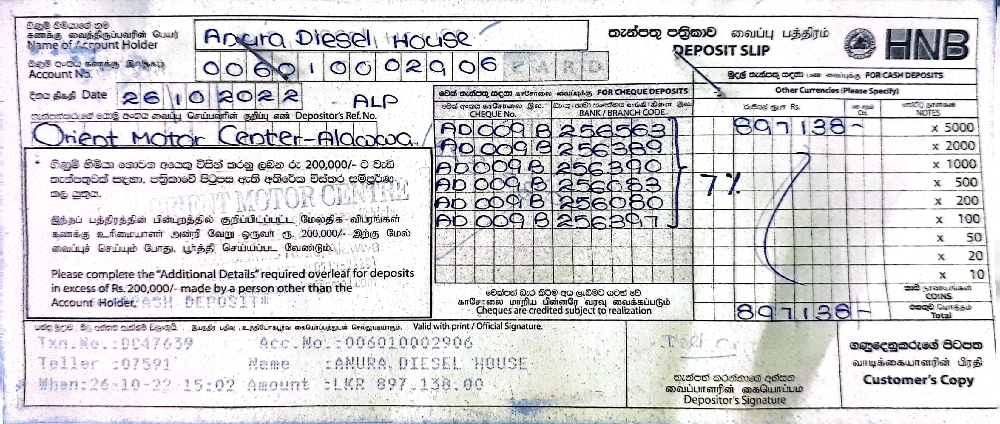 ගිණුම් හිමියාගේ නම
கணக்கு வைத்திருப்பவரின் பெயர்
Name of Account Holder
Anura Diesel House
තැන්පතු පත්‍රිකාව வைப்பு பத்திரம்
DEPOSIT SLIP
HNB
Account No.
006010002906 CARD
මුදල් තැන්පතු සඳහා FOR CASH DEPOSITS
දිනය திகதி Date 26 10 2022 - ALP
චෙක් තැන්පතු සඳහා FOR CHEQUE DEPOSITS
Other Currencies (Please Specify)
Depositor's Ref.No.
CHEQUE No.
BANK / BRANCH CODE
රුපියල් ரூபா Rs.
Cts.
NOTES
Orient Motor Center-Alawwa
AD 009 B 256563
AD 009 B 256389
AD 009 B 256390
AD 009 B 256083
AD 009 B 256080
AD 009 B 256397
7%
897138-
x 5000
x 2000
x 1000
x 500
x 200
x 100
x 50
x 20
x 10
ගිණුම් හිමියා නොවන අයෙකු විසින් කරනු ලබන රු 200,000/- ට වැඩි
තැන්පතුවක් සඳහා, පත්‍රිකාවේ පිටුපස ඇති අතිරේක විස්තර සම්පූර්ණ
කල යුතුය.
ORIENT MOTOR CENTRE
இந்தப் பத்திரத்தின் பின்புறத்தில் குறிப்பிடப்பட்ட மேலதிக விபரங்கள்
கணக்கு உரிமையாளர் அன்றி வேறு ஒருவர் ரூ. 200,000/- இற்கு மேல்
வைப்புச் செய்யும் போது, பூர்த்தி செய்யப்பட வேண்டும்.
Please complete the "Additional Details" required overleaf for deposits
in excess of Rs. 200,000/- made by a person other than the
Account Holder.
CASH DEPOSIT*
චෙක්පත් බැර කිරීම අය ලැබීමට යටත් වේ
காசோலை மாறிய பின்னரே வரவு வைக்கப்படும்
Cheques are credited subject to realization
COINS
Total
897138-
Valid with print / Official Signature.
Txn.No.:DD47639 Acc.No.:006010002906
Teller :07591 Name :ANURA DIESEL HOUSE
When:26-10-22 15:02 Amount :LKR 897,138.00
තැන්පත් කරන්නාගේ අත්සන
வைப்பாளரின் கையொப்பம்
Depositor's Signature
ගණුදෙනුකරුගේ පිටපත
வாடிக்கையாளரின் பிரதி
Customer's Copy